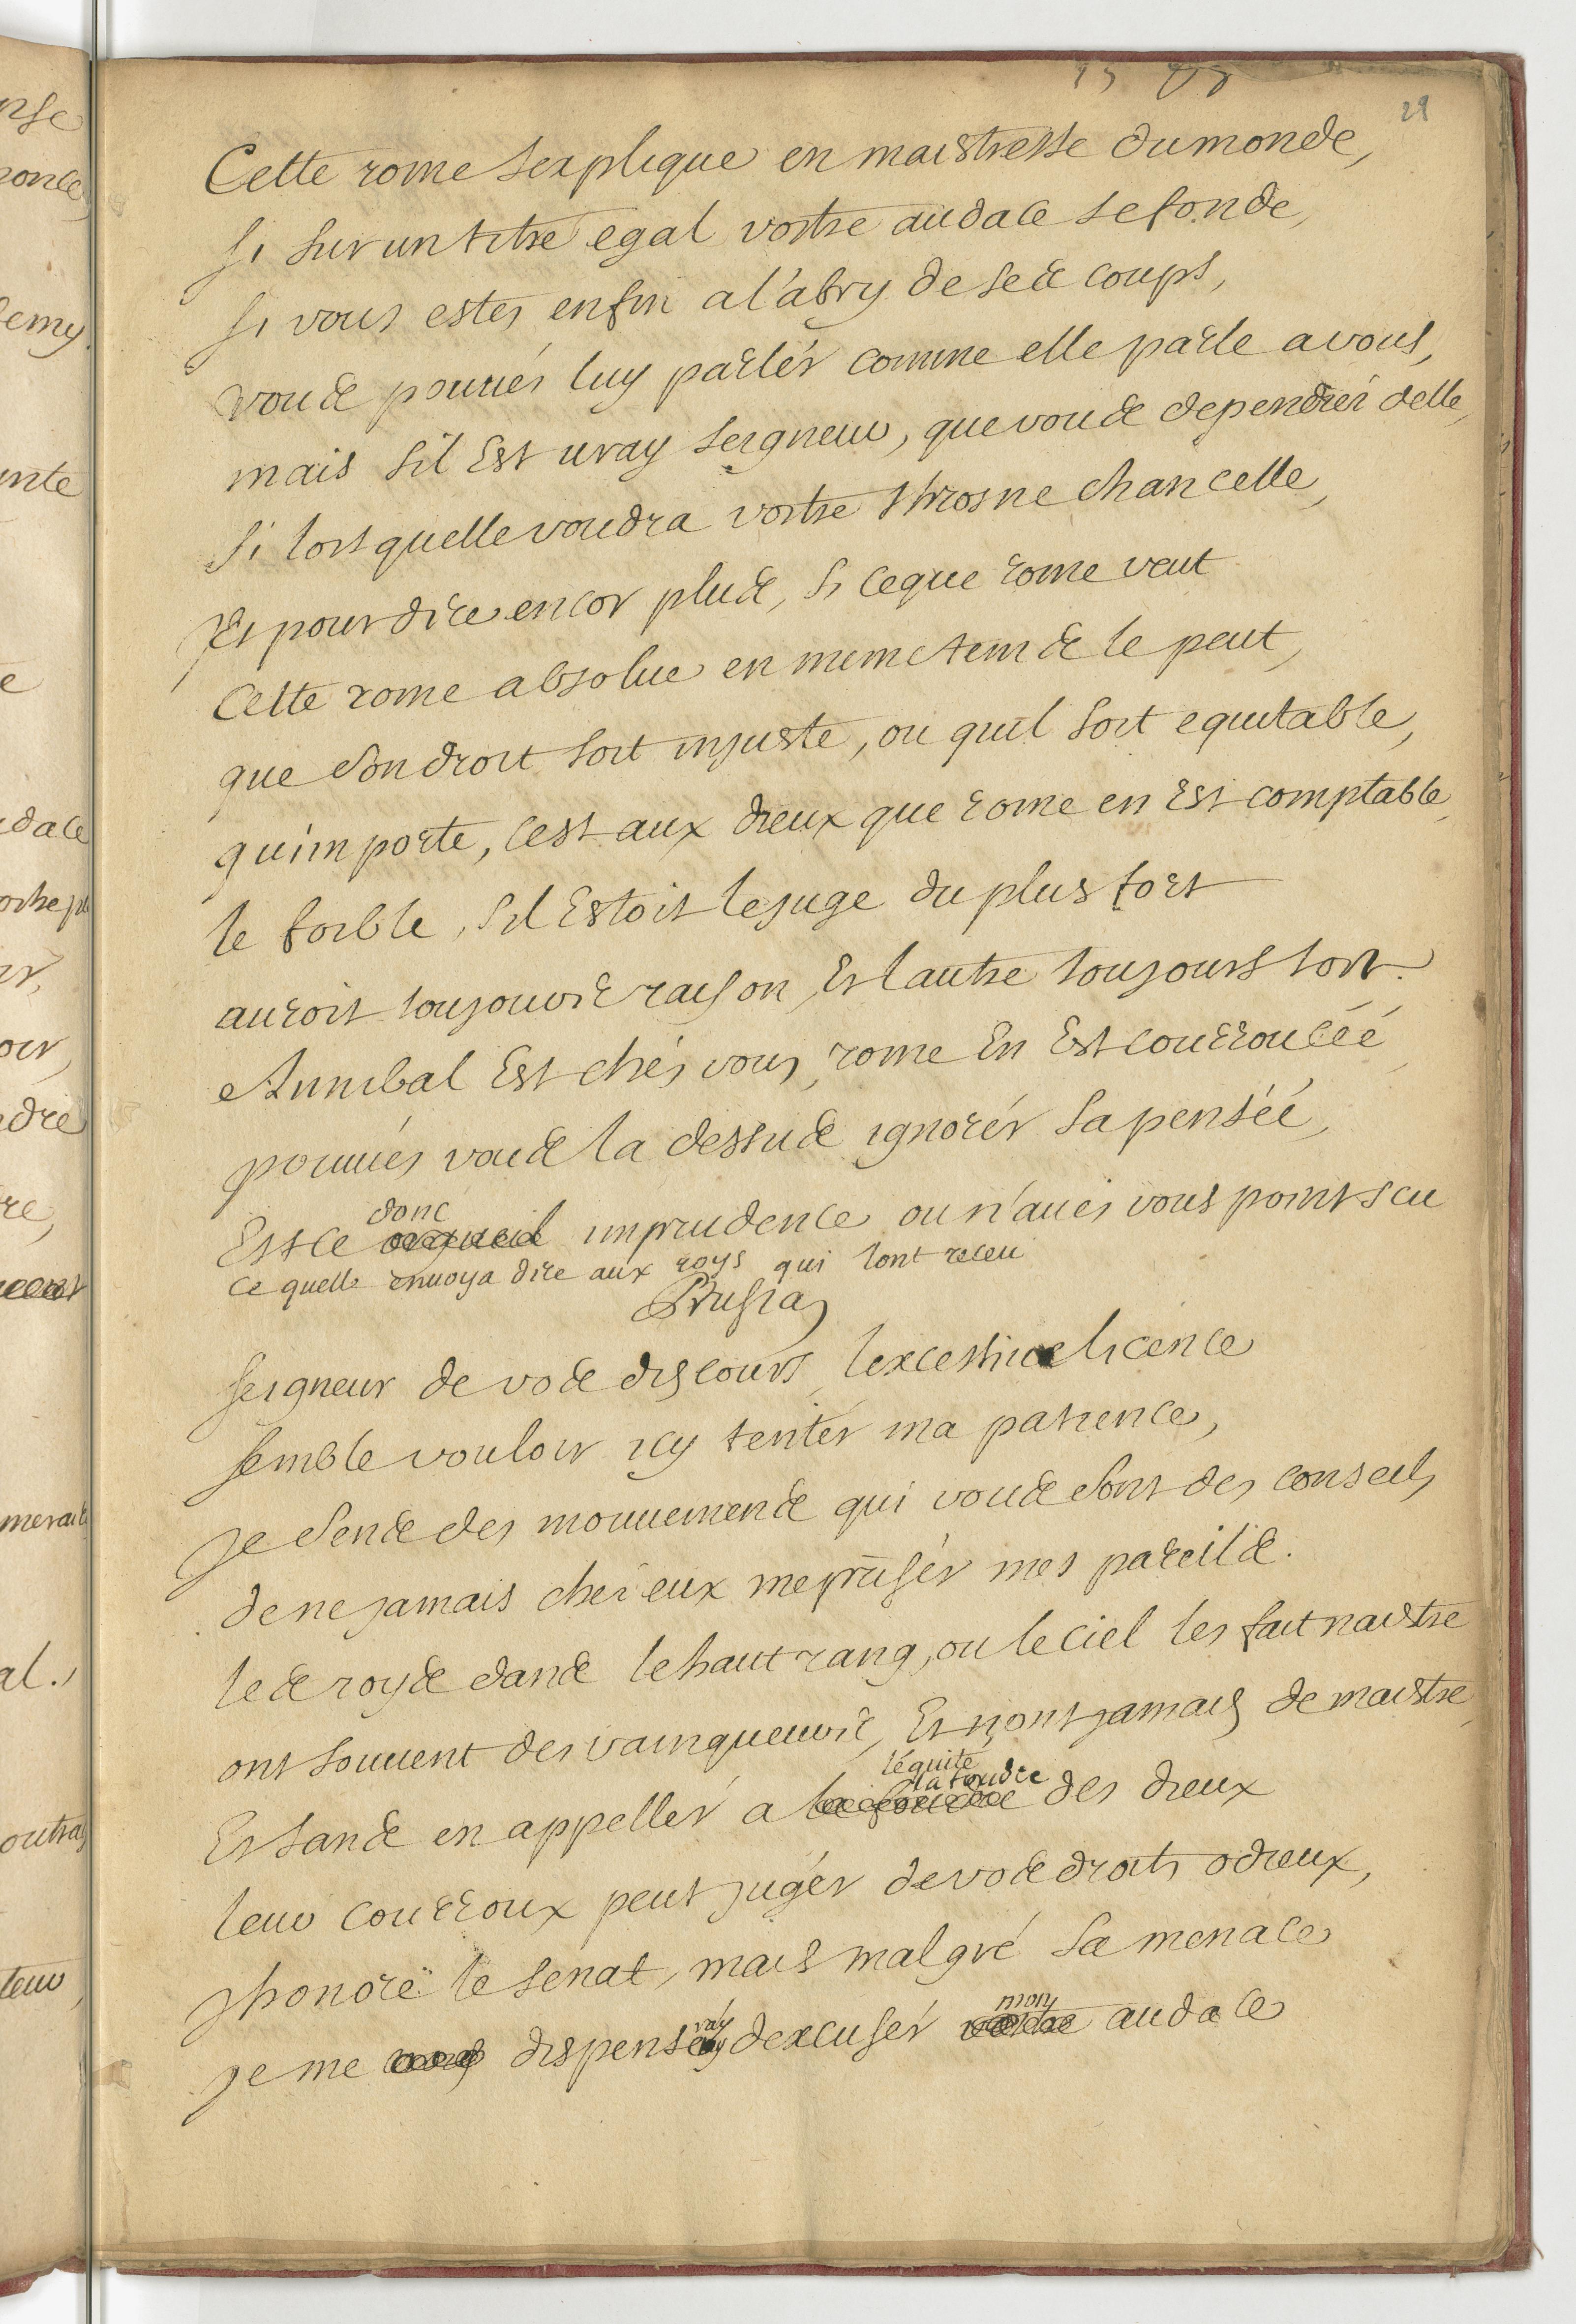 29
Cette rome sexplique en maistresse du monde,
si sur un titre egal vostre audace se fonde,
si vous estes enfin a l'abry de ses coups,
vous pouués luy parlér comme elle parle a vous,
mais sil Est uray seigneur, que vous dependiés delle,
si lors quelle voudra vostre throsne chancelle,
Et pour dire encor plus, si ce que rome veut
Cette rome absolue en meme tems le peut,
que son droit soit injuste, ou quil soit equitable,
qu'importe, cest aux dieux que rome en Est comptable,
le foible, sil Estoit le juge du plus fort
auroit toujours raison, Et lautre toujours tort.
Annibal Est chés vous, rome En Est courroucéé
pouués vous la dessus ignorér sa penséé,
donc
Est ce orgueil imprudence ou n'aués vous point scu
Ce quelle enuoya dire aux roys qui lont receu
Prusias
seigneur de vos discours, lexcessiue licence
semble vouloir icy tentér ma patience,
Je sens des mouuemens qui vous sont des conseils
de ne jamais chés eux meprisér mes pareils.
les roys dans le haut rang, ou le ciel les fait naistre
ont souuent des vainqueurs, Et n'ont jamais de maistre
léquité
la foudre
Et sans en appellér a la foudre des dieux
leur courroux peut jugér de vos droits odieux,
Jhonore le senat, mais malgré sa menace
vay mon
Je me dispenseray dexcusér vostre audace
nse
once,
emy.
nte
e
dace
ir,
oir,
dre
re,
al.,
leur,